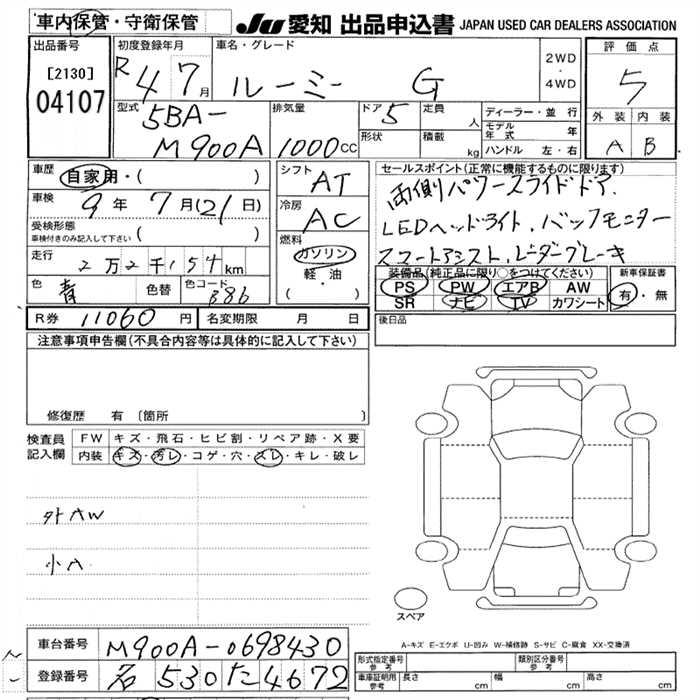 車内保管・守衛保管
JU 愛知 出品申込書 JAPAN USED CAR DEALERS ASSOCIATION
出品番号
[2130]
04107
初度登録年月
R4 7月
車名・グレード
ルーミー G
2WD
・
4WD
評価点
5
外装 内装
A B
型式
5BA-
M900A
排気量
1000cc
ドア 5
形状
定員 人
積載 kg
ディーラー・並行
モデル年式 年
ハンドル 左・右
車歴
自家用・( )
車検
9年7月(21日)
受検形態
車検付きのみ記入して下さい ( )
走行
2万2千154km
色 青 色替 色コード B86
シフト
AT
冷房
AC
燃料
ガソリン
軽・油
( ・ )
セールスポイント(正常に機能するものに限ります)
両側パワースライドドア.
LEDヘッドライト.バックモニター
スマートアシスト.レーダーブレーキ
装備品(純正品に限り○をつけてください)
PS PW エアB AW
SR ナビ TV カワシート
新車保証書
有・無
R券 11060円 名変期限 月 日
後日品
注意事項申告欄(不具合内容等は具体的に記入して下さい)
修復歴 有 〔箇所
検査員
記入欄
FW キズ・飛石・ヒビ割・リペア跡・X要
内装 キズ・汚レ・コゲ・穴・スレ・キレ・破レ
外AW
小A
スペア
A-キズ E-エクボ U-凹み W-補修跡 S-サビ C-腐食 XX-交換済
車台番号 M900A-0698430
登録番号 名530た4672
形式指定番号
参考
類別区分番号
参考
車庫証明用
参考
長さ cm 幅 cm 高さ cm